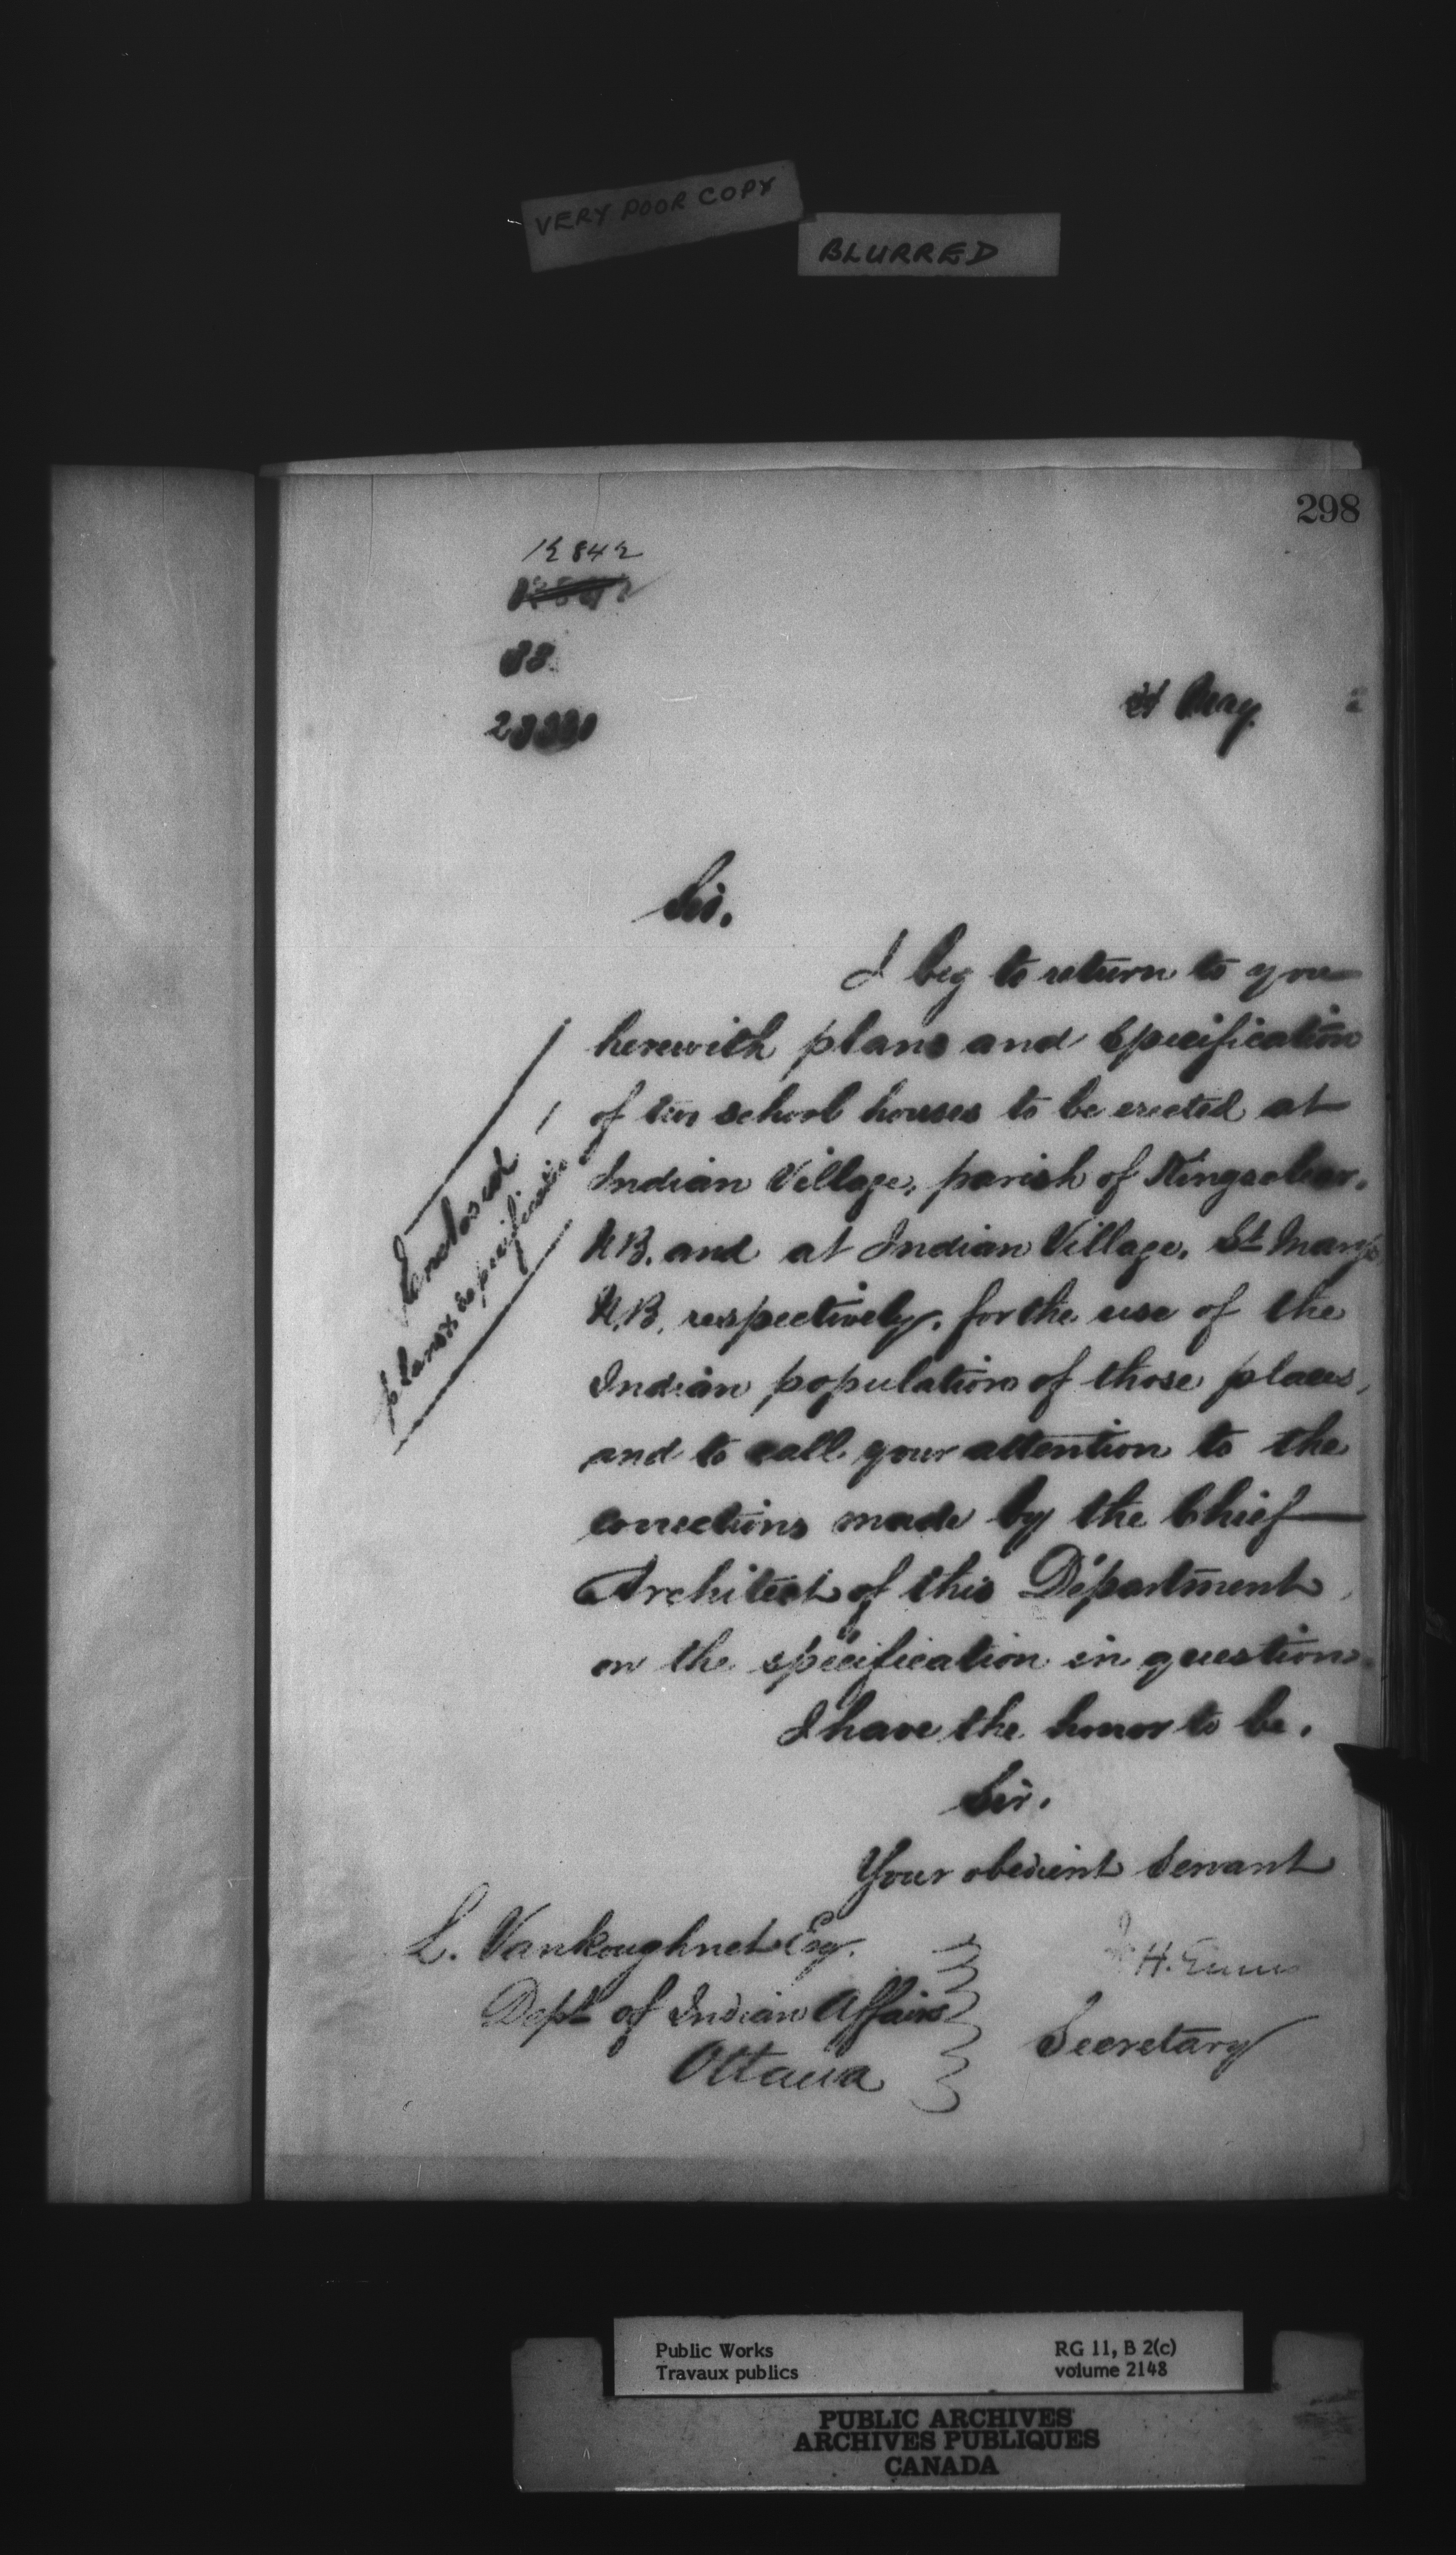 VERY POOR COPY
BLURRED
298
12842
88
31 May
Sir,
I beg to return to you
herewith plans and specification
of two school houses to be erected at
Indian Village, parish of Kingsclear,
N.B. and at Indian Village, St Mary's
N.B. respectively, for the use of the
Indian population of those places,
and to call your attention to the
corrections made by the Chief
Architect of this Department
on the specification in question.
I have the honor to be,
Sir,
Your obedient Servant
Enclosed
plans & specification
L. Vankoughnet Esq.
Dept of Indian Affairs
Ottawa
H. Ennis
Secretary
Public Works
Travaux publics
RG 11, B 2(c)
volume 2148
PUBLIC ARCHIVES
ARCHIVES PUBLIQUES
CANADA